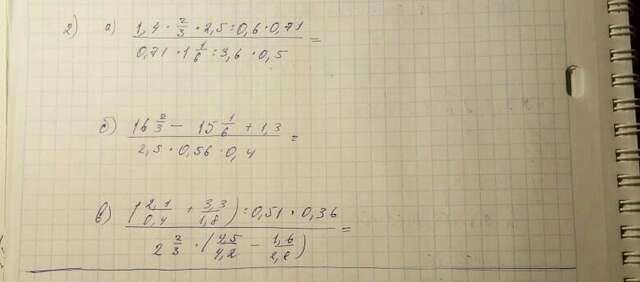 2) а) (1,4 · 2/3 · 2,5 : 0,6 · 0,71) / (0,71 · 1 1/6 : 3,6 · 0,5) =
б) (16 2/3 − 15 1/6 + 1,3) / (2,5 · 0,56 · 0,4) =
в) ((2,1/0,4 + 3,3/1,8) : 0,51 · 0,36) / (2 2/3 · (4,5/4,2 − 1,6/2,8)) =